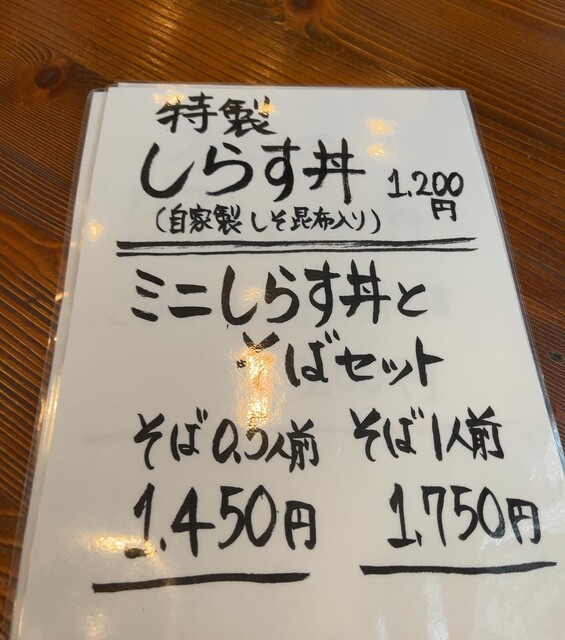 特製
しらす丼 1,200円
(自家製しそ昆布入り)
ミニしらす丼と
そばセット
そば0.5人前 そば1人前
1,450円 1,750円